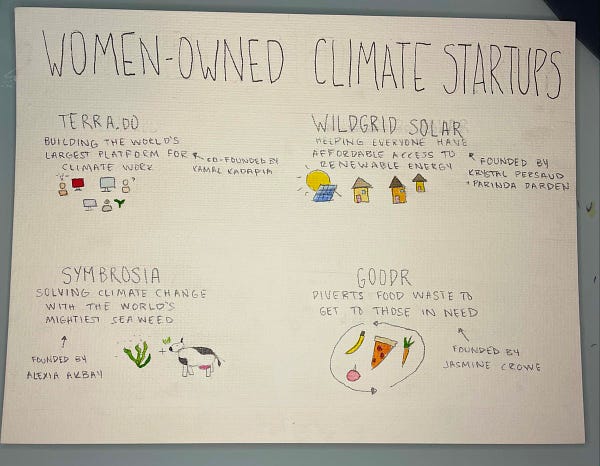 WOMEN-OWNED CLIMATE STARTUPS
TERRA.DO
BUILDING THE WORLD'S
LARGEST PLATFORM FOR
CLIMATE WORK
CO-FOUNDED BY
KAMAL KADAPIA
WILDGRID SOLAR
HELPING EVERYONE HAVE
AFFORDABLE ACCESS TO
RENEWABLE ENERGY
FOUNDED BY
KRYSTAL PERSAUD
+ PARINDA DARDEN
SYMBROSIA
SOLVING CLIMATE CHANGE
WITH THE WORLD'S
MIGHTIEST SEAWEED
FOUNDED BY
ALEXIA AKBAY
GOODR
DIVERTS FOOD WASTE TO
GET TO THOSE IN NEED
FOUNDED BY
JASMINE CROWE